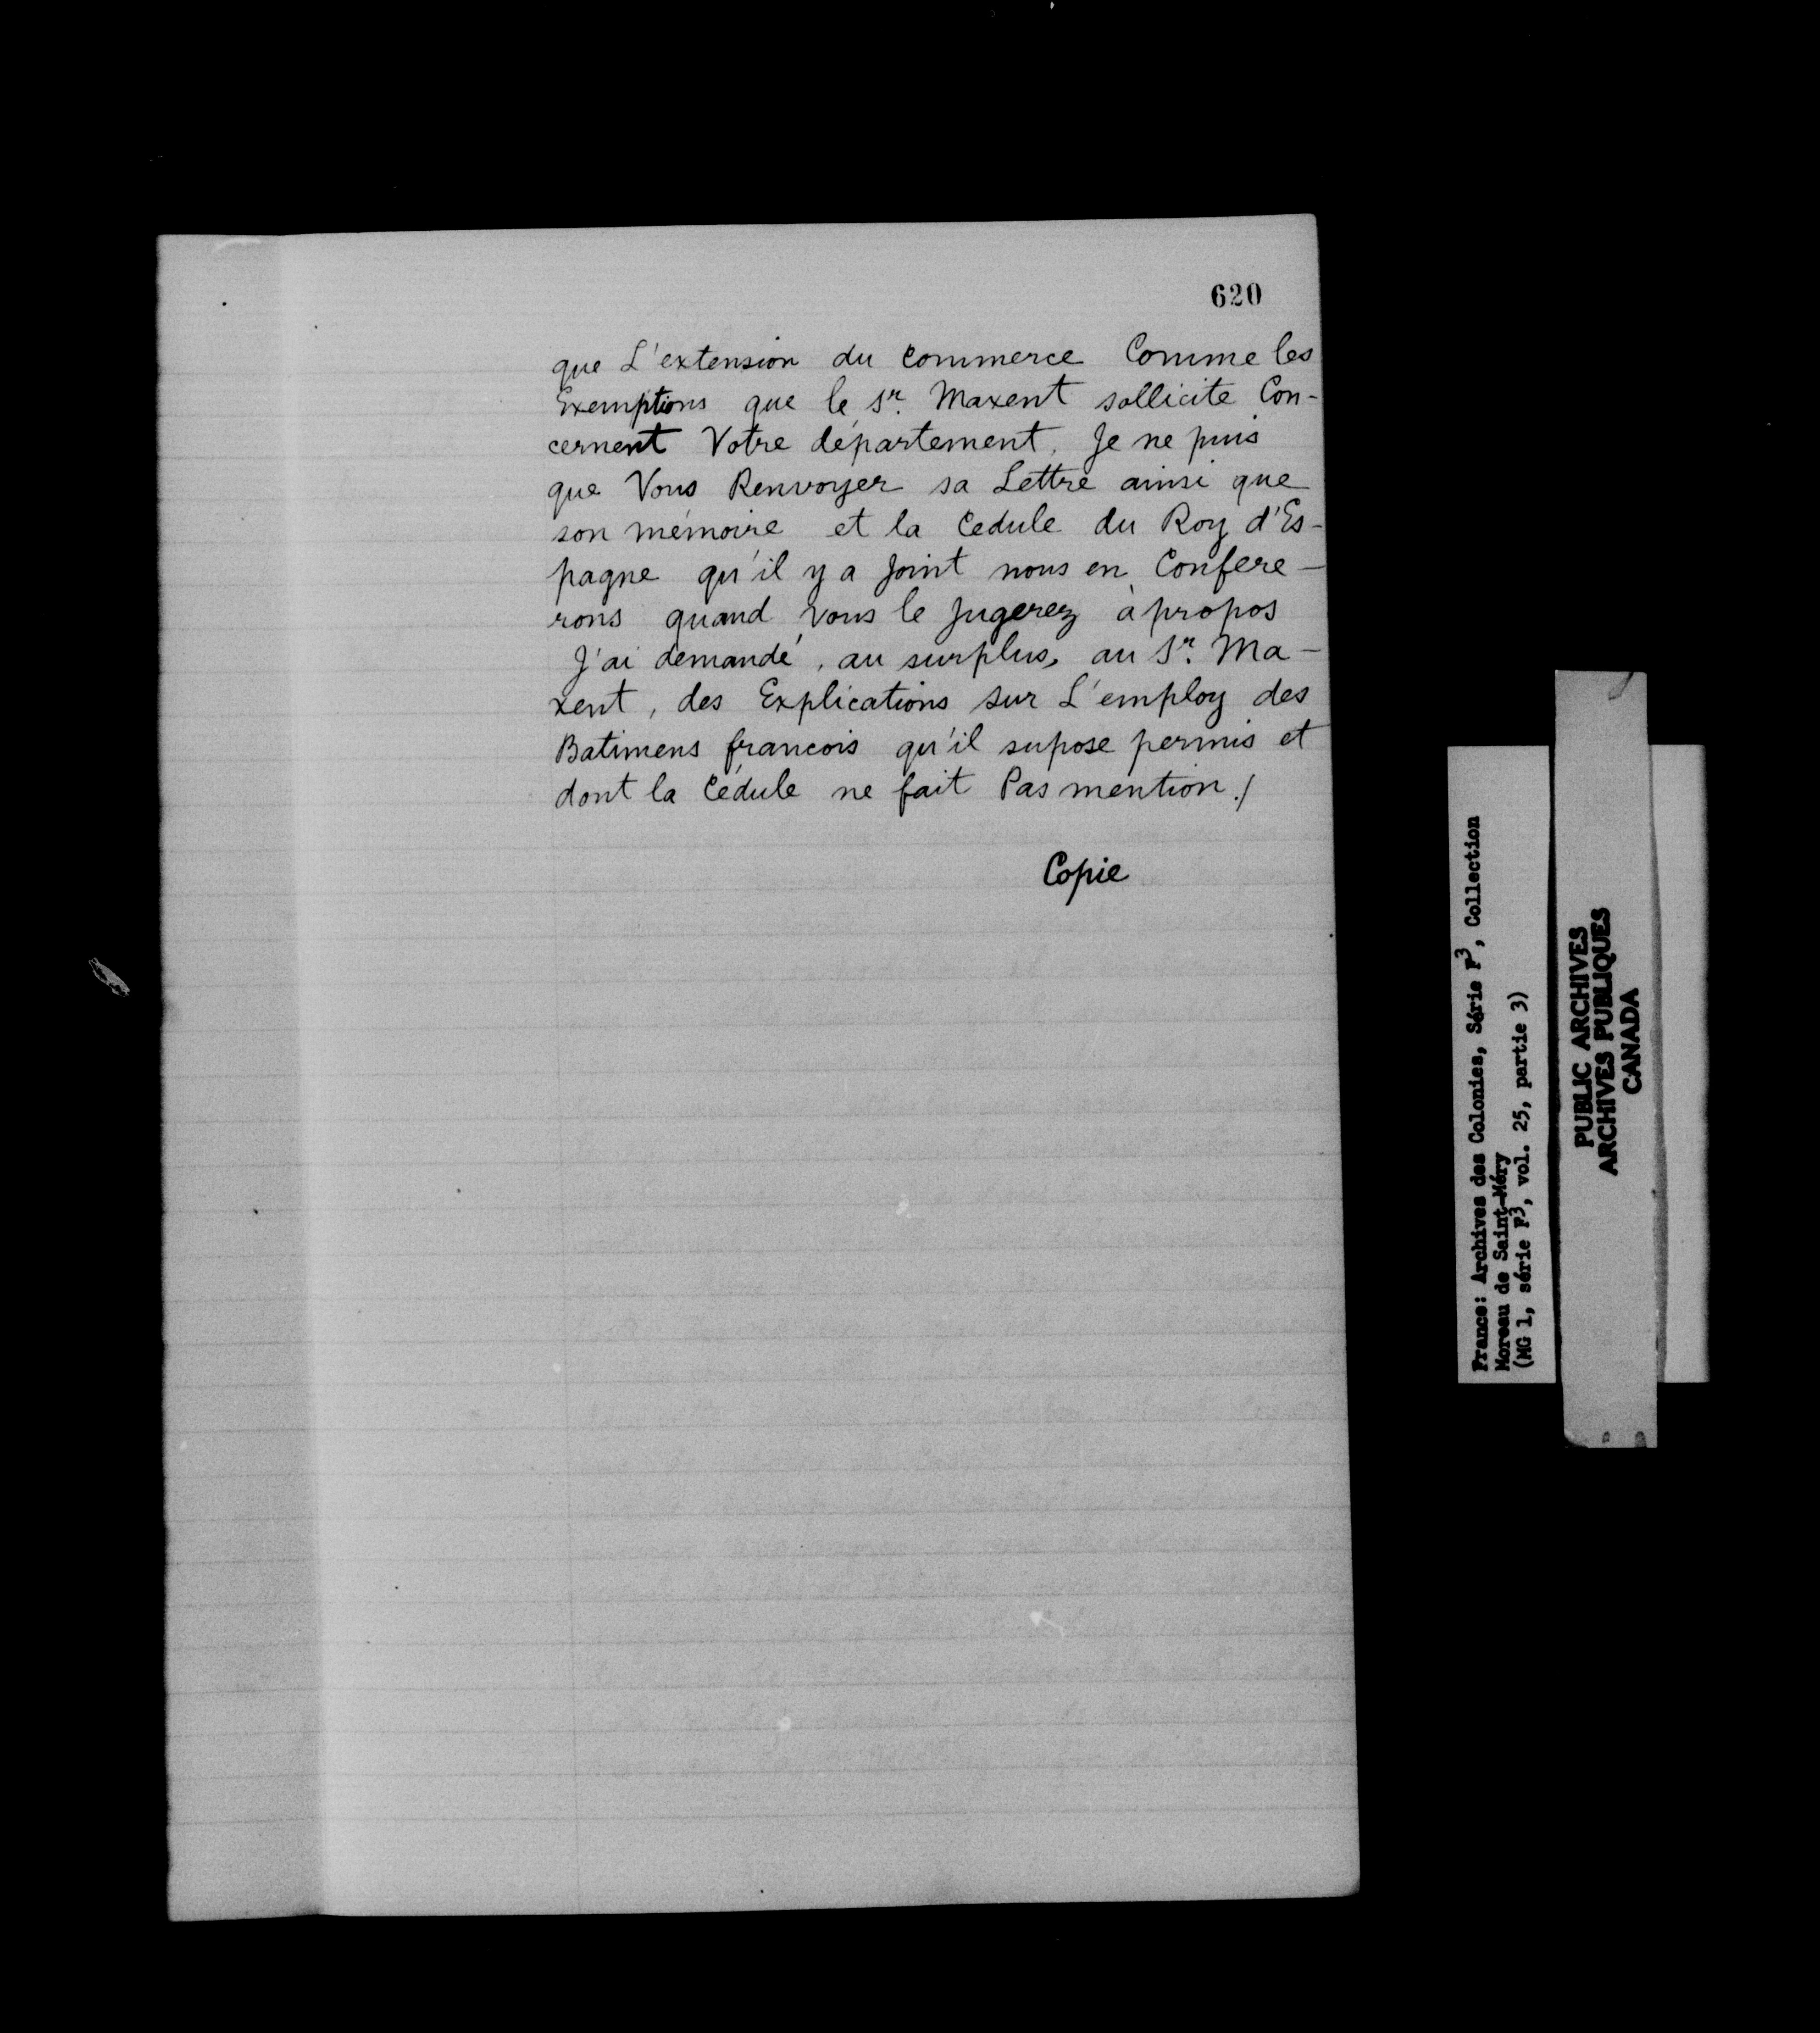 620
que L'extension du Commerce Comme les
Exemptions que le Sr. Maxent sollicite Con-
cernent Votre département, Je ne puis
que Vous Renvoyer sa Lettre ainsi que
son mémoire et la Cedule du Roy d'Es-
pagne qu'il y a Joint nous en Confere-
rons quand vous le Jugerez à propos
J'ai demandé, au surplus, au Sr. Ma-
xent, des Explications sur L'employ des
Batimens francois qu'il supose permis et
dont la Cédule ne fait Pas mention ./
Copie
France: Archives des Colonies, Série F3, Collection
Moreau de Saint-Méry
(MG 1, série F3, vol. 25, partie 3)
PUBLIC ARCHIVES
ARCHIVES PUBLIQUES
CANADA